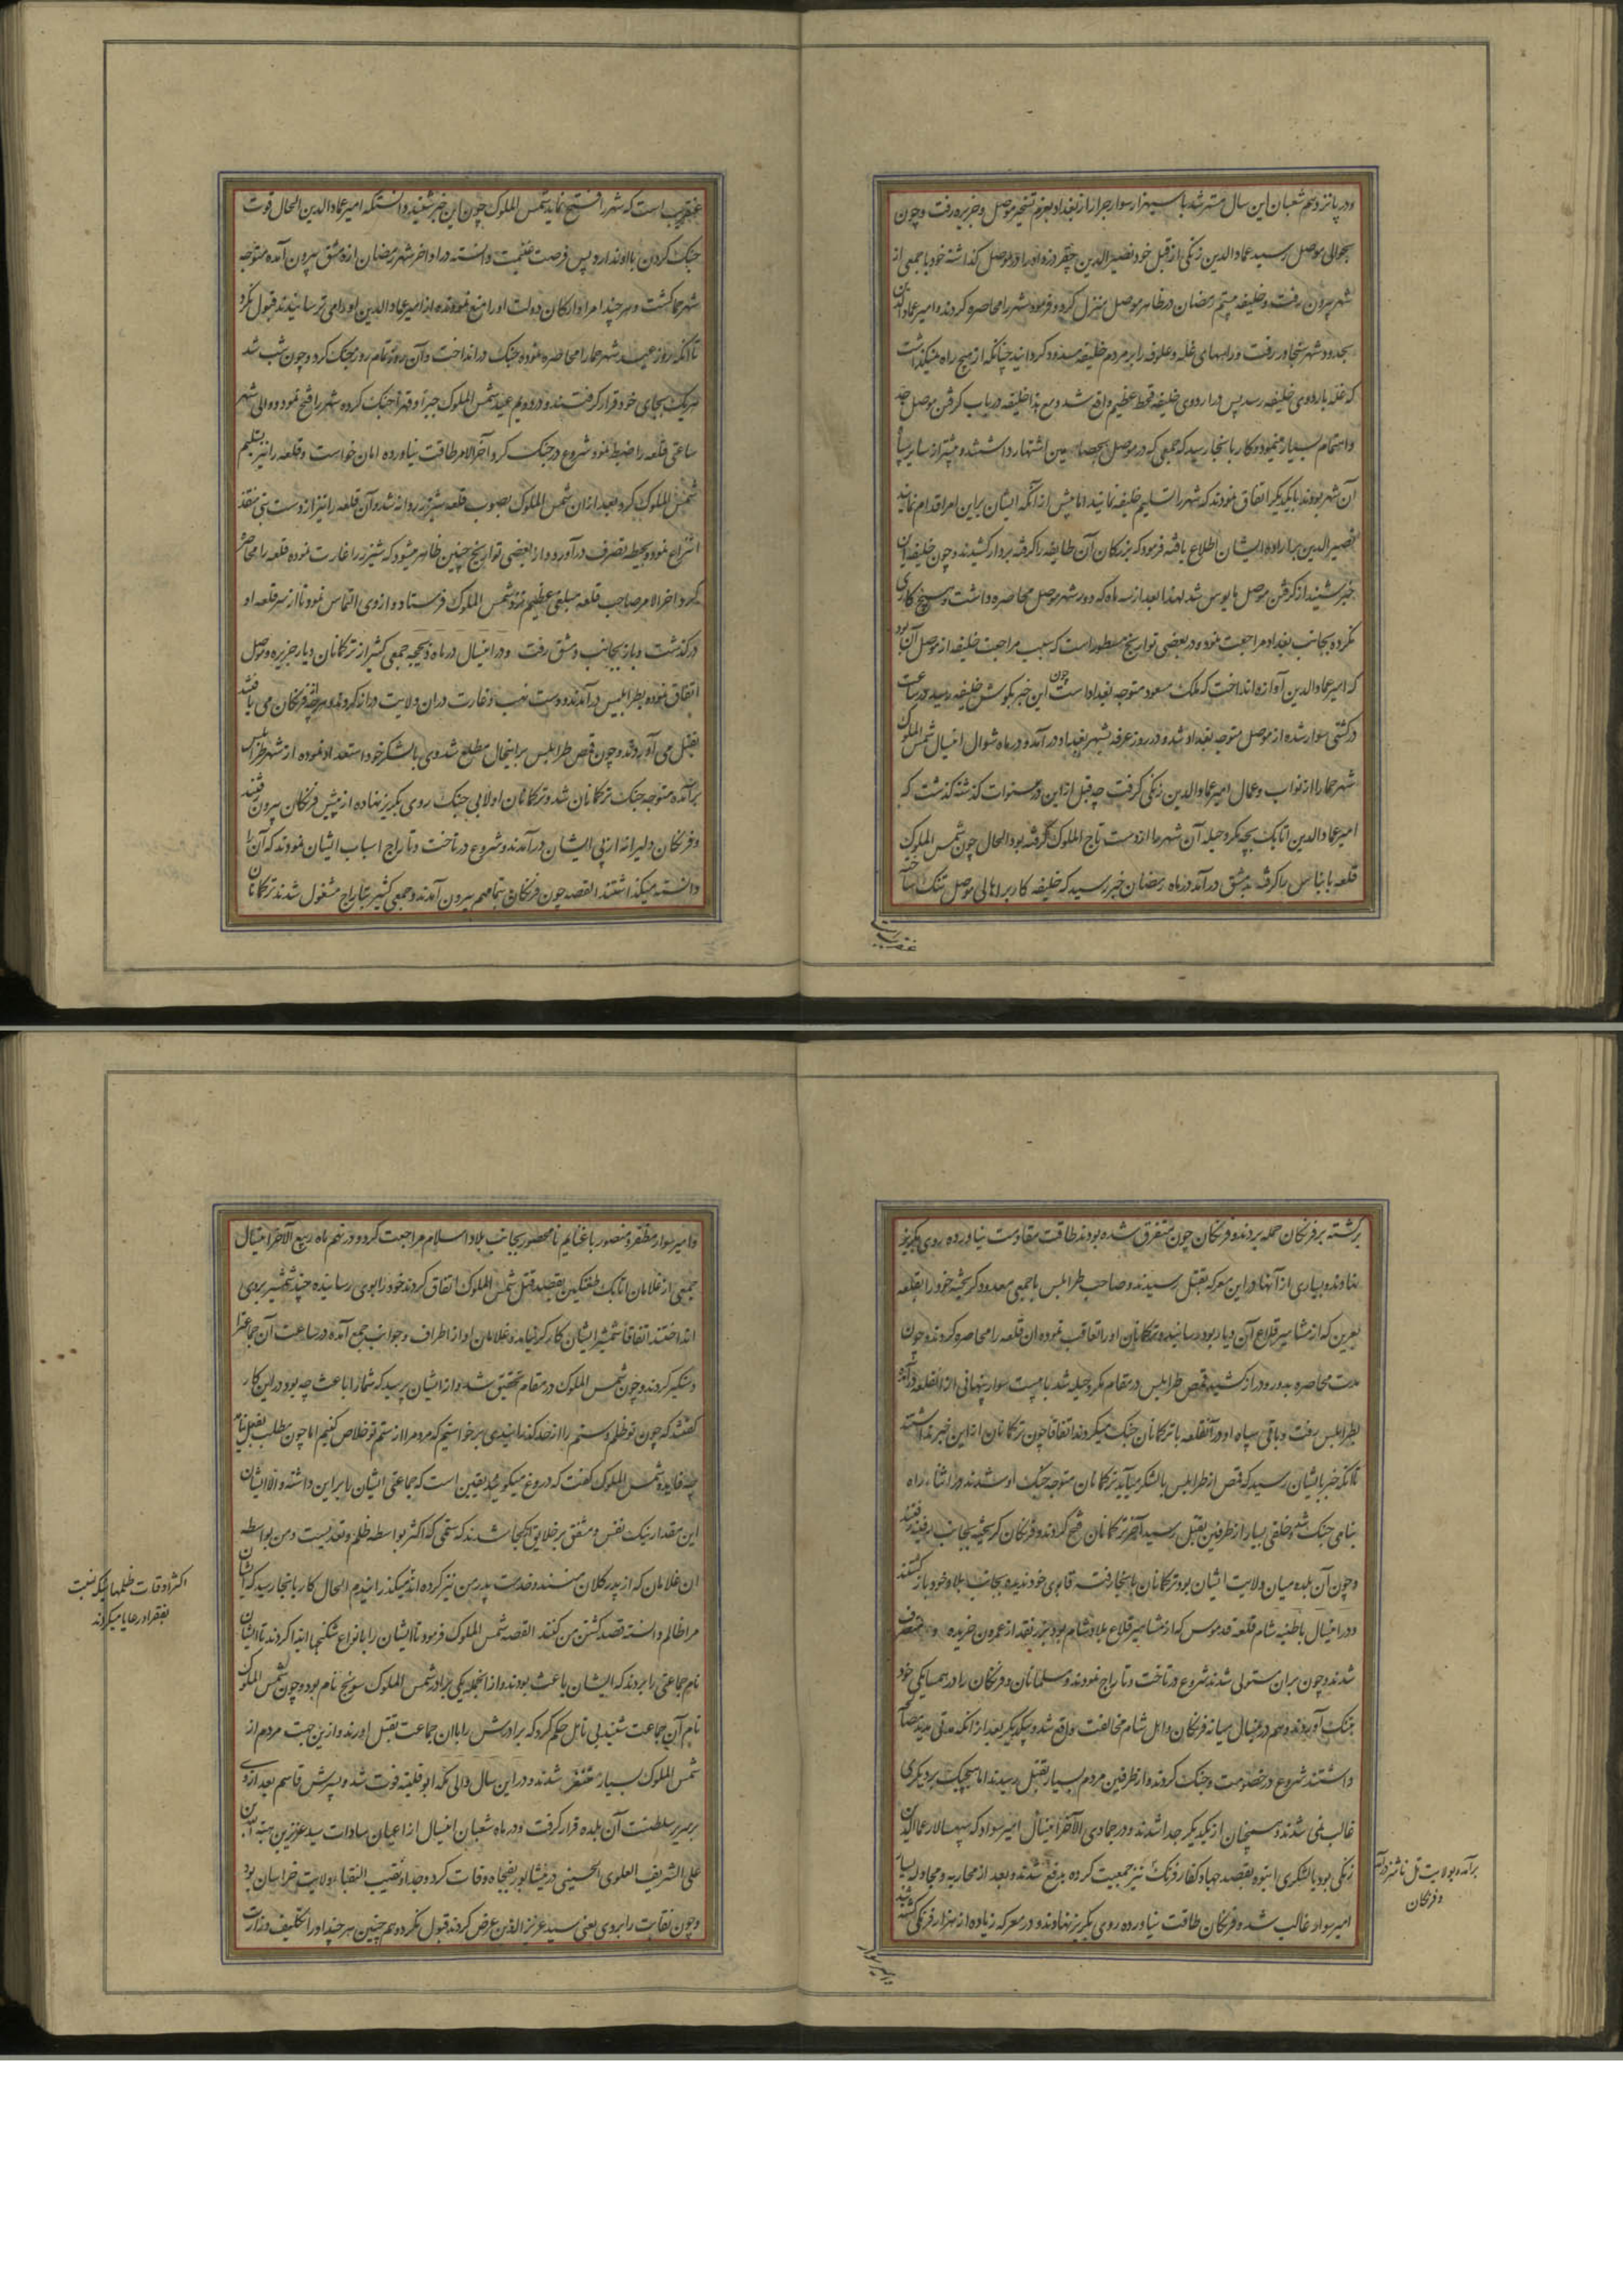 ودر پانزدهم شعبان این سال مسترشد با سیهزار سوار جرار از بغداد بعزم تسخیر موصل و جزیره رفت و چون
بحوالی موصل رسید عماد الدین زنکی از قبل خود نصیر الدین چقر دزه او را در موصل کذاشته خود با جمعی از
شهر بیرون رفت و خلیفه بیستم رمضان در ظاهر موصل منزل کرد و فرمود شهر را محاصره کردند و امیر عماد الدین
بحدود شهر سنجار رفت و راههای غله و علوفه را بر مردم خلیفه مسدود کردانید چنانکه از هیچ راه نمیکذاشت
که غله باردوی خلیفه رسد پس در اردوی خلیفه قحط عظیم واقع شد و مع هذا خلیفه در باب کرفتن موصل جد
و اهتمام بسیار مینمود و کار بانجا رسید که جمعی که در موصل بجصاصین اشتهار داشتند و بیشتر از سایر سپاه
آن شهر بودند با یکدیکر اتفاق نمودند که شهر را تسلیم خلیفه نمایند اما پیش از آنکه ایشان براین امر اقدام نمایند
نصیر الدین بر اراده ایشان اطلاع یافته فرمود که بزرکان آن طایفه را کرفته بردار کشیدند و چون خلیفه این
خبر شنید از کرفتن موصل مایوس شد لهذا بعد از سه ماه که دور شهر موصل محاصره داشت و هیچ کاری
نکرده بجانب بغداد مراجعت نمود و در بعضی تواریخ مسطور است که سبب مراجعت خلیفه از موصل آن بود
که امیر عماد الدین آوازه انداخت که ملک مسعود متوجه بغداد است چون این خبر بکوش خلیفه رسید در ساعت
در کشتی سوار شده از موصل متوجه بغداد شد و در روز عرفه بشهر بغداد در آمد و در ماه شوال اینسال شمس الملوک
شهر حما را از نواب و عمال امیر عماد الدین زنکی کرفت چه قبل ازین در سنوات کذشته کذشت که
امیر عماد الدین اتابک بچه مکر و حیله آن شهر حما از دست تاج الملوک کرفته بود الحال چون شمس الملوک
قلعه بانیاس را کرفت بدمشق در آمد در ماه رمضان خبر رسید که خلیفه کار بر اهالی موصل تنک ساخته
عنقریب است
عنقریب است که شهر را فتح نماید شمس الملوک چون این خبر شنید دانست که امیر عماد الدین الحال قوت
جنک کردن با او ندارد پس فرصت غنیمت دانسته در اواخر شهر رمضان از دمشق بیرون آمده متوجه
شهر حما کشت و هر چند امرا و ارکان دولت او را منع نمودند و از امیر عماد الدین او را می ترسانیدند قبول نکرد
تا آنکه روز عید شهر حما را محاصره نموده جنک در انداخت و آن روز تمام روز جنک کرد و چون شب شد
هریک بجای خود قرار کرفتند و در دویم عید شمس الملوک جبرا و قهرا جنک کرده شهر را فتح نمود و والی شهر
ساعتی قلعه را ضبط نمود شروع در جنک کرد آخر الامر طاقت نیاورده امان خواست و قلعه را نیز تسلیم
شمس الملوک کرد و بعد از ان شمس الملوک بصوب قلعه شیزر روانه شد و آن قلعه را نیز از دست بنی منقذ
انتزاع نمود و بحیطه تصرف در آورد و از بعضی تواریخ چنین ظاهر میشود که شیزر را غارت نموده قلعه را محاصره
کرد و آخر الامر صاحب قلعه مبلغی عظیم نزد شمس الملوک فرستاد و از وی التماس نمود تا از سر قلعه او
درکذشت و باز بجانب دمشق رفت و در اینسال در ماه ذیحجه جمعی کثیر از ترکمانان دیار جزیره و موصل
اتفاق نموده بطرابلس درآمدند و دست نهب و غارت دران ولایت دراز کردند و هرچه از فرنکان می یافتند
بقتل می آوردند و چون قمص طرابلس براینحال مطلع شد وی با لشکر خود استعداد نموده از شهر طرابلس
برآمده متوجه جنک ترکمانان شد و ترکمانان اولا بی جنک روی بکریز نهاده از پیش فرنکان بیرون رفتند
و فرنکان دلیرانه از پی ایشان درآمدند و شروع در تاخت و تاراج اسباب ایشان نمودند که آن را
دانسته میکذاشتند القصه چون فرنکان بتمامهم بیرون آمدند و جمعی کثیر بتاراج مشغول شدند ترکمانان
برکشته بر فرنکان حمله بردند و فرنکان چون متفرق شده بودند طاقت مقاومت نیاورده روی بکریز
نهادند و بسیاری از آنها در این معرکه بقتل رسیدند و صاحب طرابلس با جمعی معدود کریخته خود را بقلعه
بعرین که از مشاهیر قلاع آن دیار بود رسانید و ترکمانان او را تعاقب نموده ان قلعه را محاصره کردند و چون
مدت محاصره بدور و دراز کشید قمص طرابلس در مقام مکر و حیله شد با بیست سوار پنهانی از انقلعه برآمده
بطرابلس رفت و باقی سپاه او در آنقلعه با ترکمانان جنک میکردند اتفاقا چون ترکمانان از این خبر نداشتند
تا آنکه خبر بایشان رسید که قمص از طرابلس با لشکر میآید ترکمانان متوجه جنک او شدند در اثناء راه
بناهی جنک شد و خلقی بسیار از طرفین بقتل رسید آخر ترکمانان فتح کردند و فرنکان کریخته بجانب رفنیه رفتند
و چون آن بلده میان ولایت ایشان بود ترکمانان بانجا رفتن قابوی خود ندیده بجانب بلاد خود باز کشتند
و در اینسال باطنیه شام قلعه قدموس که از مشاهیر قلاع بلاد شام بود بزر نقد از عمرون خریده و متصرف
شدند و چون بران مستولی شدند شروع در تاخت و تاراج نمودند و مسلمانان و فرنکان را در همسایکی خود
بتنک آوردند و هم در اینسال میانه فرنکان و اهل شام مخالفت واقع شد و با یکدیکر بعد از انکه مدتی مدید مصالحه
داشتند شروع در خصومت و جنک کردند و از طرفین مردم بسیار بقتل رسیدند اما هیچیک بر دیکری
غالب نمی شدند و همچنان از یکدیکر جدا شدند و در جمادی الآخر اینسال امیر سوار که سپهسالار عماد الدین
زنکی بود با لشکری انبوه بقصد جهاد کفار فرنک نیز جمعیت کرده بدفع شدند و بعد از محاربه و مجادله بسیار
امیر سوار غالب شده فرنکان طاقت نیاورده روی بکریز نهادند و در معرکه زیاده از هزار فرنکی کشته شد
برآمده بولایت تل ناشر درآمد
و فرنکان
و امیر سوار
و امیر سوار مظفر و منصور با غنایم نامحصور بجانب بلاد اسلام مراجعت کرد و در نهم ماه ربیع الآخر اینسال
جمعی از غلامان اتابک طغتکین بقصد قتل شمس الملوک اتفاق کردند خود را بوی رسانیده چند شمشیر بروی
انداختند اتفاقا شمشیر ایشان کارکر نیامد و غلامان او از اطراف و جوانب جمع آمده در ساعت آن جماعة را
دستکیر کردند و چون شمس الملوک در مقام تحقیق شد و از ایشان پرسید که شما را باعث چه بود در این کار
کفتند که چون تو ظلم و ستم را از حد کذرانیدی برخواستیم که مردم را از ستم تو خلاص کنیم اما چون مطلب بفعل نیامد
چه فایده شمس الملوک کفت که دروغ میکویید یقین است که جماعتی ایشان را براین داشته و الا ایشان
این مقدار نیک نفس و مشفق بر خلایق کجا شدند که ستمی که اکثر بواسطه ظلم و تعدیست و من بواسطه
ان غلامان که از پدر کلان منند و خدمت پدر من نیز کرده اند میکذرانیدم الحال کار بانجا رسید که ایشان
مرا ظالم دانسته قصد کشتن من کنند القصه شمس الملوک فرمود تا ایشان را بانواع شکنجها ایذا کردند تا ایشان
نام جماعتی را بردند که ایشان باعث بودند و از انجمله یکی برادر شمس الملوک سونج نام بود و چون شمس الملوک
نام آن جماعت شنید بی تامل حکم کرد که برادرش را با ان جماعت بقتل اورند و ازین جهت مردم از
شمس الملوک بسیار متنفر شدند و در این سال والی مکه ابو فلیته فوت شد و پسرش قاسم بعد از وی
بر سریر سلطنت آن بلده قرار کرفت و در ماه شعبان اینسال از اعیان سادات سید عزیز بن هبه الله بن
علی الشریف العلوی الحسینی در نیشابور بفجاه وفات کرد و جد او نقیب النقباء ولایت خراسان بود
و چون نقابت را بروی یعنی سید عزیز الدین عرض کردند قبول نکرد و هم چنین هر چند او را تکلیف وزارت
اکثر اوقات ظلمهای که نسبت
بفقرا و رعایا میکردند